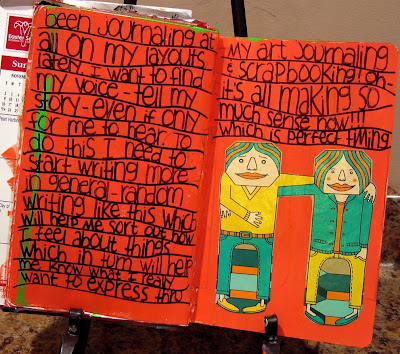 been journaling at
all on my layouts
lately. I want to find
my voice - tell my
story - even if only
for me to hear. To
do this I need to
start writing more
in general - random
writing like this which
will help me sort out how
I feel about things -
which in turn will help
me know what I really
want to express thru
my art journaling
& scrapbooking! oh -
it's all making so
much sense now!!!
which is perfect timing